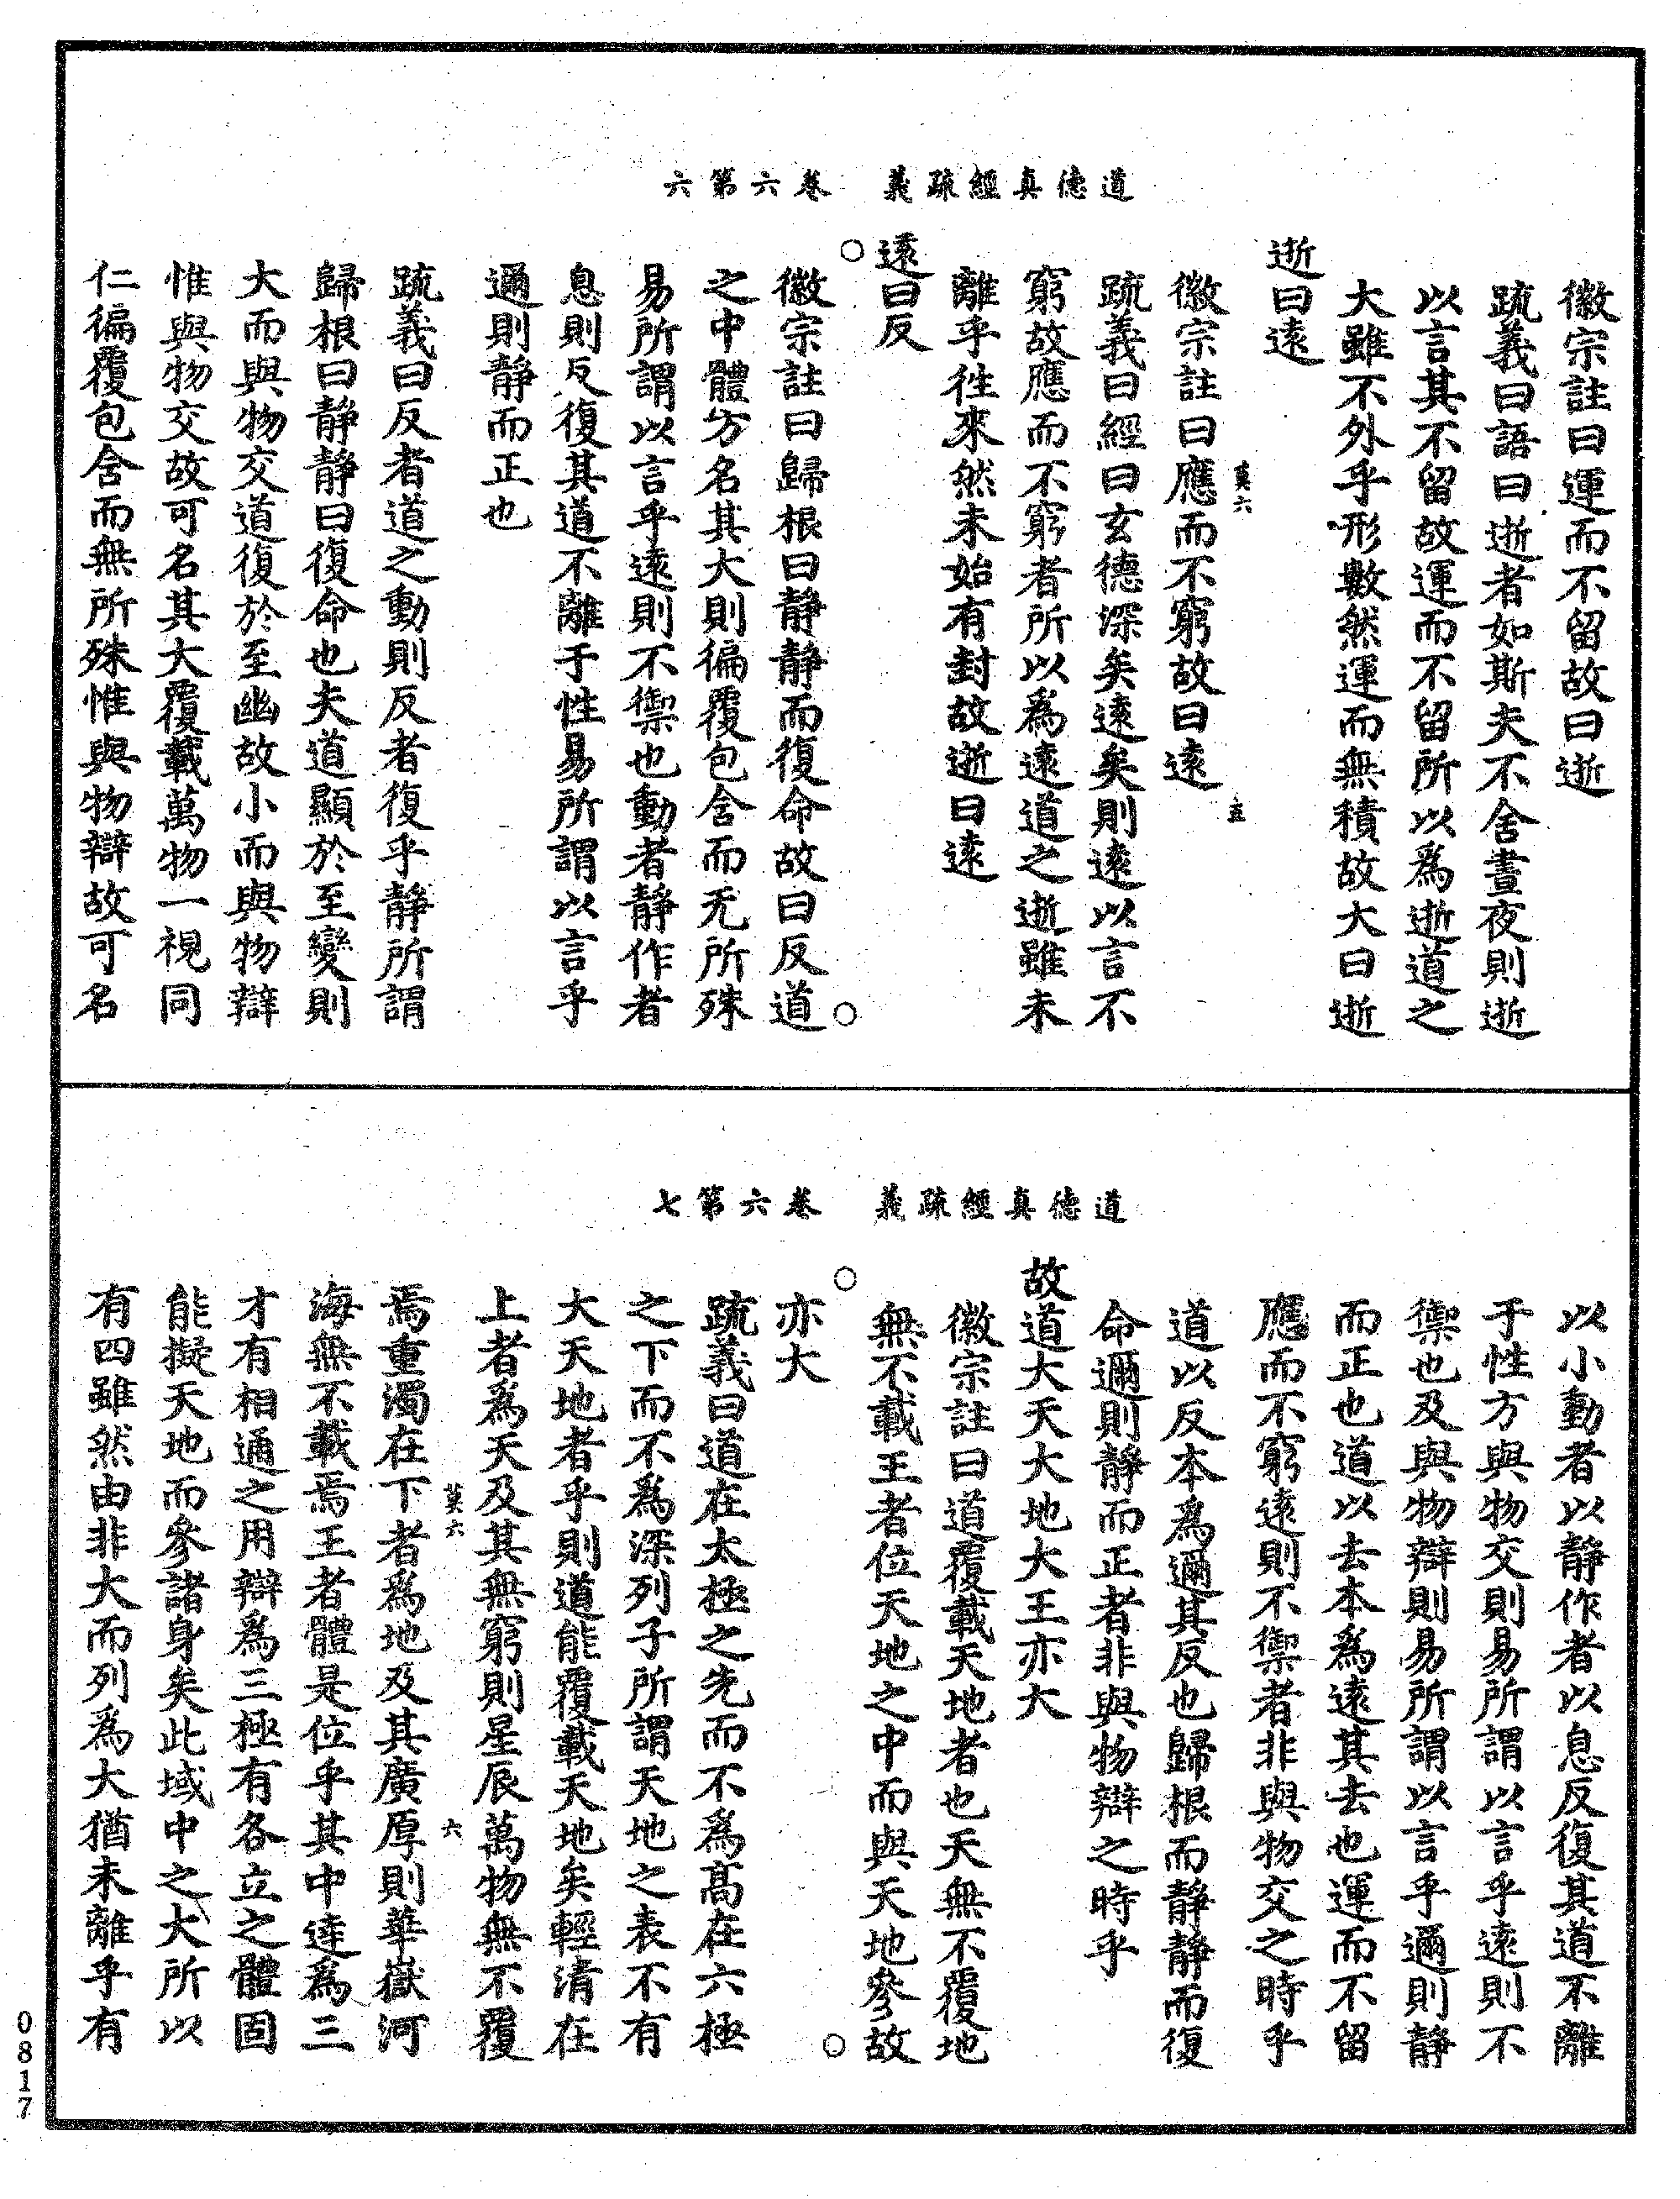 道德真經疏義　卷六第六
徽宗註曰運而不留故曰逝
疏義曰語曰逝者如斯夫不舍晝夜則逝
以言其不留故運而不留所以為逝道之
大雖不外乎形數然運而無積故大曰逝
逝曰遠
莫六　五
徽宗註曰應而不窮故曰遠
疏義曰經曰玄德深矣遠矣則遠以言不
窮故應而不窮者所以為遠道之逝雖未
離乎徃來然未始有封故逝曰遠
遠曰反
○　○
徽宗註曰歸根曰静静而復命故曰反道
之中體方名其大則徧覆包含而无所殊
易所謂以言乎遠則不禦也動者静作者
息則反復其道不離于性易所謂以言乎
邇則静而正也
疏義曰反者道之動則反者復乎静所謂
歸根曰静静曰復命也夫道顯於至變則
大而與物交道復於至幽故小而與物辯
惟與物交故可名其大覆載萬物一視同
仁徧覆包含而無所殊惟與物辯故可名
道德真經疏義　卷六第七
以小動者以静作者以息反復其道不離
于性方與物交則易所謂以言乎遠則不
禦也及與物辯則易所謂以言乎邇則静
而正也道以去本為遠其去也運而不留
應而不窮遠則不禦者非與物交之時乎
道以反本為邇其反也歸根而静静而復
命邇則静而正者非與物辯之時乎
故道大天大地大王亦大
徽宗註曰道覆載天地者也天無不覆地
無不載王者位天地之中而與天地參故
○　○
亦大
疏義曰道在太極之先而不為高在六極
之下而不為深列子所謂天地之表不有
大天地者乎則道能覆載天地矣輕清在
上者為天及其無窮則星辰萬物無不覆
莫六　六
焉重濁在下者為地及其廣厚則華嶽河
海無不載焉王者體是位乎其中達為三
才有相通之用辯為三極有各立之體固
能擬天地而參諸身矣此域中之大所以
有四雖然由非大而列為大猶未離乎有
0817